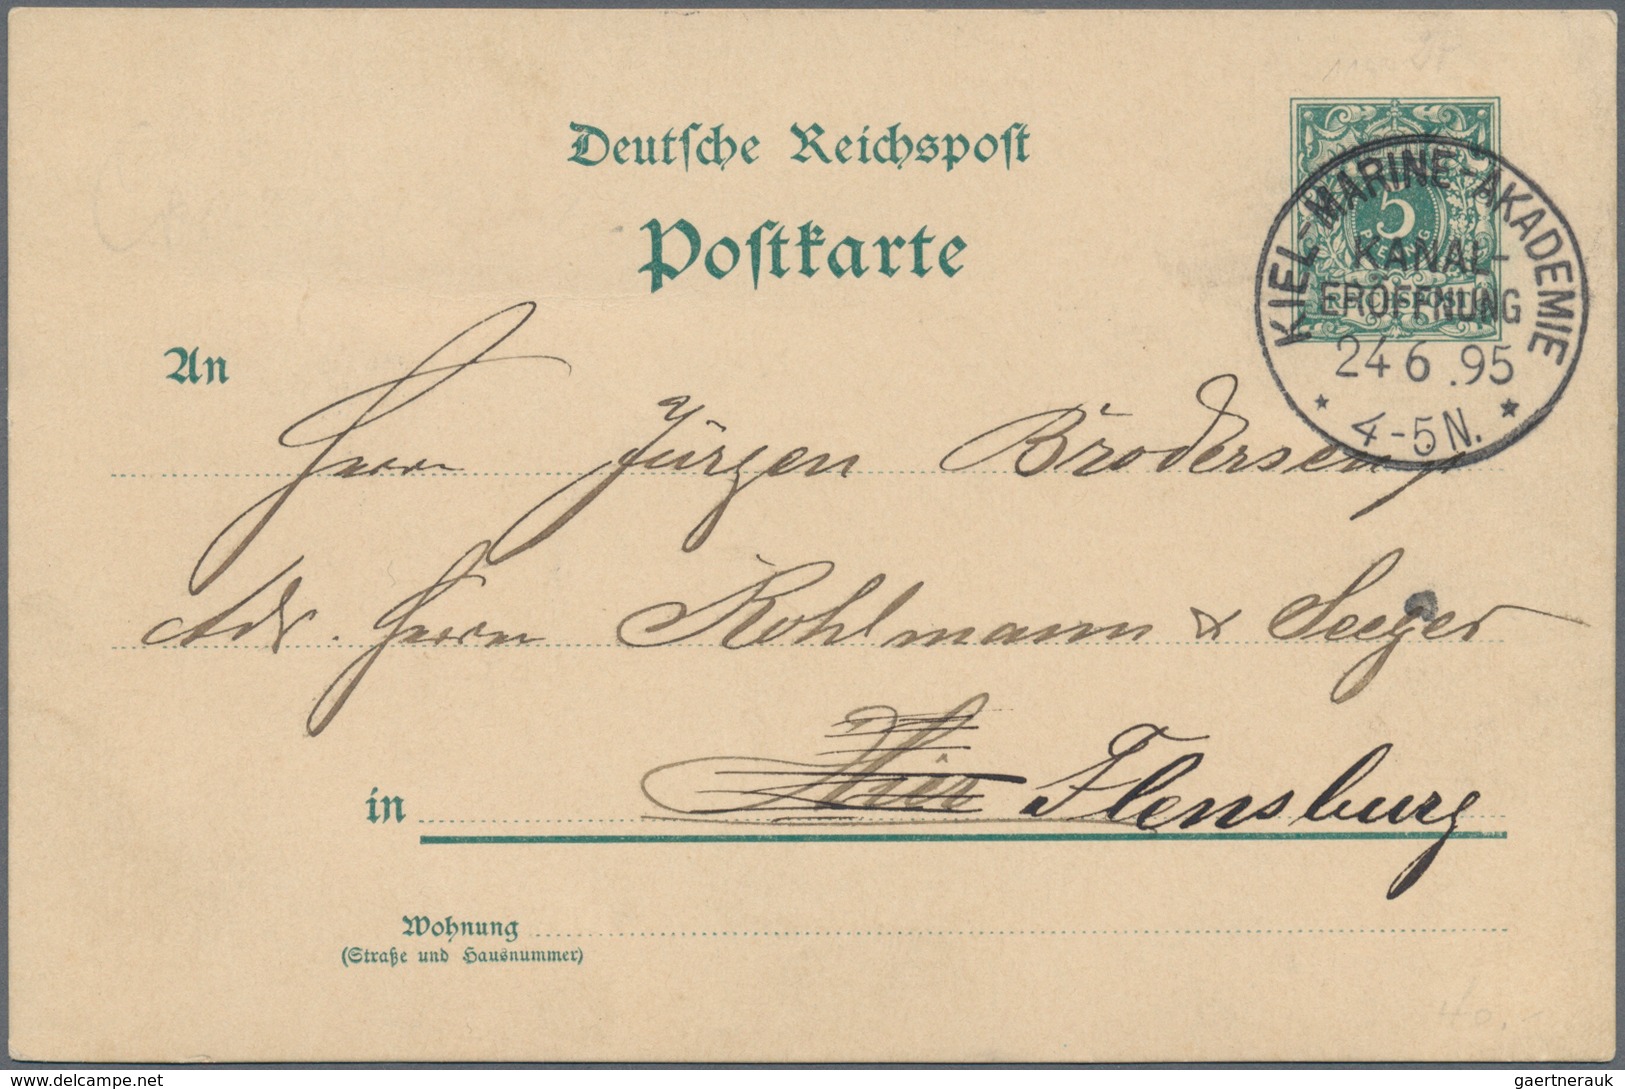 Deutsche Reichspost
Postkarte
5
PFENNIG
REICHSPOST
KIEL-MARINE-AKADEMIE
KANAL-
ERÖFFNUNG
24 6 .95
* 4-5 N. *
An
Herrn Jürgen Brodersen
Adr. Herrn Kohlmann & Seeger
in Hier Flensburg
Wohnung
(Straße und Hausnummer)
40,-
www.delcampe.net
gaertnerauk